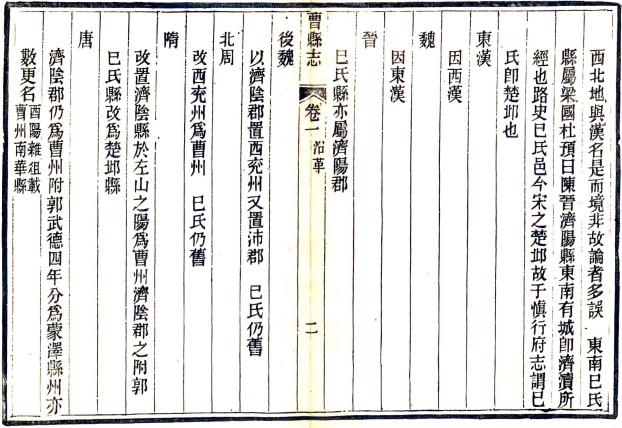 西北地與漢名是而境非故論者多誤　東南巳氏
縣屬梁國杜預曰陳晉濟陽縣東南有城卽濟瀆所
經也路史巳氏邑今宋之楚邱故于愼行府志謂巳
氏卽楚邱也
東漢
因西漢
魏
因東漢
晉
巳氏縣亦屬濟陽郡
曹縣志
卷一 沿革
二
後魏
以濟陰郡置西兖州又置沛郡　巳氏仍舊
北周
改西兖州爲曹州　巳氏仍舊
隋
改置濟陰縣於左山之陽爲曹州濟陰郡之附郭
巳氏縣改爲楚邱縣
唐
濟陰郡仍爲曹州附郭武德四年分爲蒙澤縣州亦
數更名 酉陽雜俎載曹州南華縣